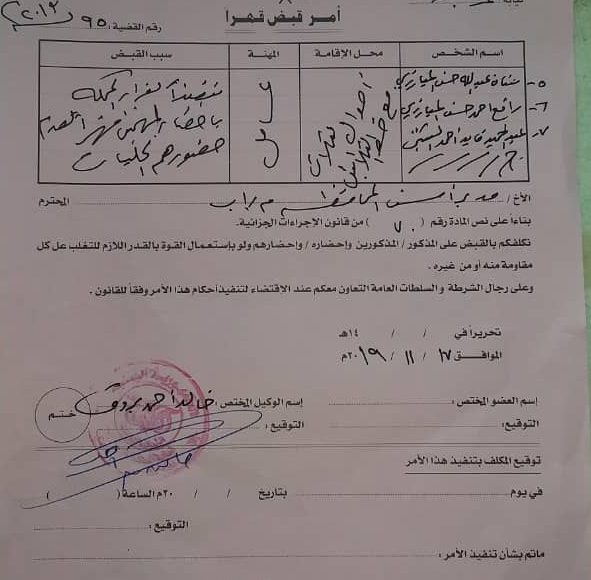 نيابة
رقم القضية: ٩٥
أمر قبض قهراً
اسم الشخص محل الإقامة المهنة سبب القبض
٥- عبدالله حسن
٦- رافع احمد حسن
٧- عبدالحميد قايد احمد
عامل
تنفيذاً لقرار المحكمة
باحضار المتهمين قهراً لعدم
حضورهم الجلسات
الأخ / مدير أمن المحافظة مأرب المحترم
بناءاً على نص المادة رقم ( ٧٠ ) من قانون الإجراءات الجزائية.
نكلفكم بالقبض على المذكور / المذكورين وإحضاره / وإحضارهم ولو بإستعمال القوة بالقدر اللازم للتغلب عل كل
مقاومة منه أو من غيره .
وعلى رجال الشرطة و السلطات العامة التعاون معكم عند الإقتضاء لتنفيذ أحكام هذا الأمر وفقاً للقانون .
تحريراً في / / ١٤هـ
الموافق ١٧ / ١١ / ٢٠١٩م
إسم العضو المختص : إسم الوكيل المختص : خالد احمد ختم
التوقيع : التوقيع :
توقيع المكلف بتنفيذ هذا الأمر
في يوم بتاريخ / / ٢٠م الساعة ( )
التوقيع :
ماتم بشأن تنفيذ الأمر :